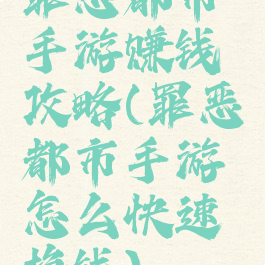 罪恶都市
手游赚钱
攻略(罪恶
都市手游
怎么快速
挣钱)